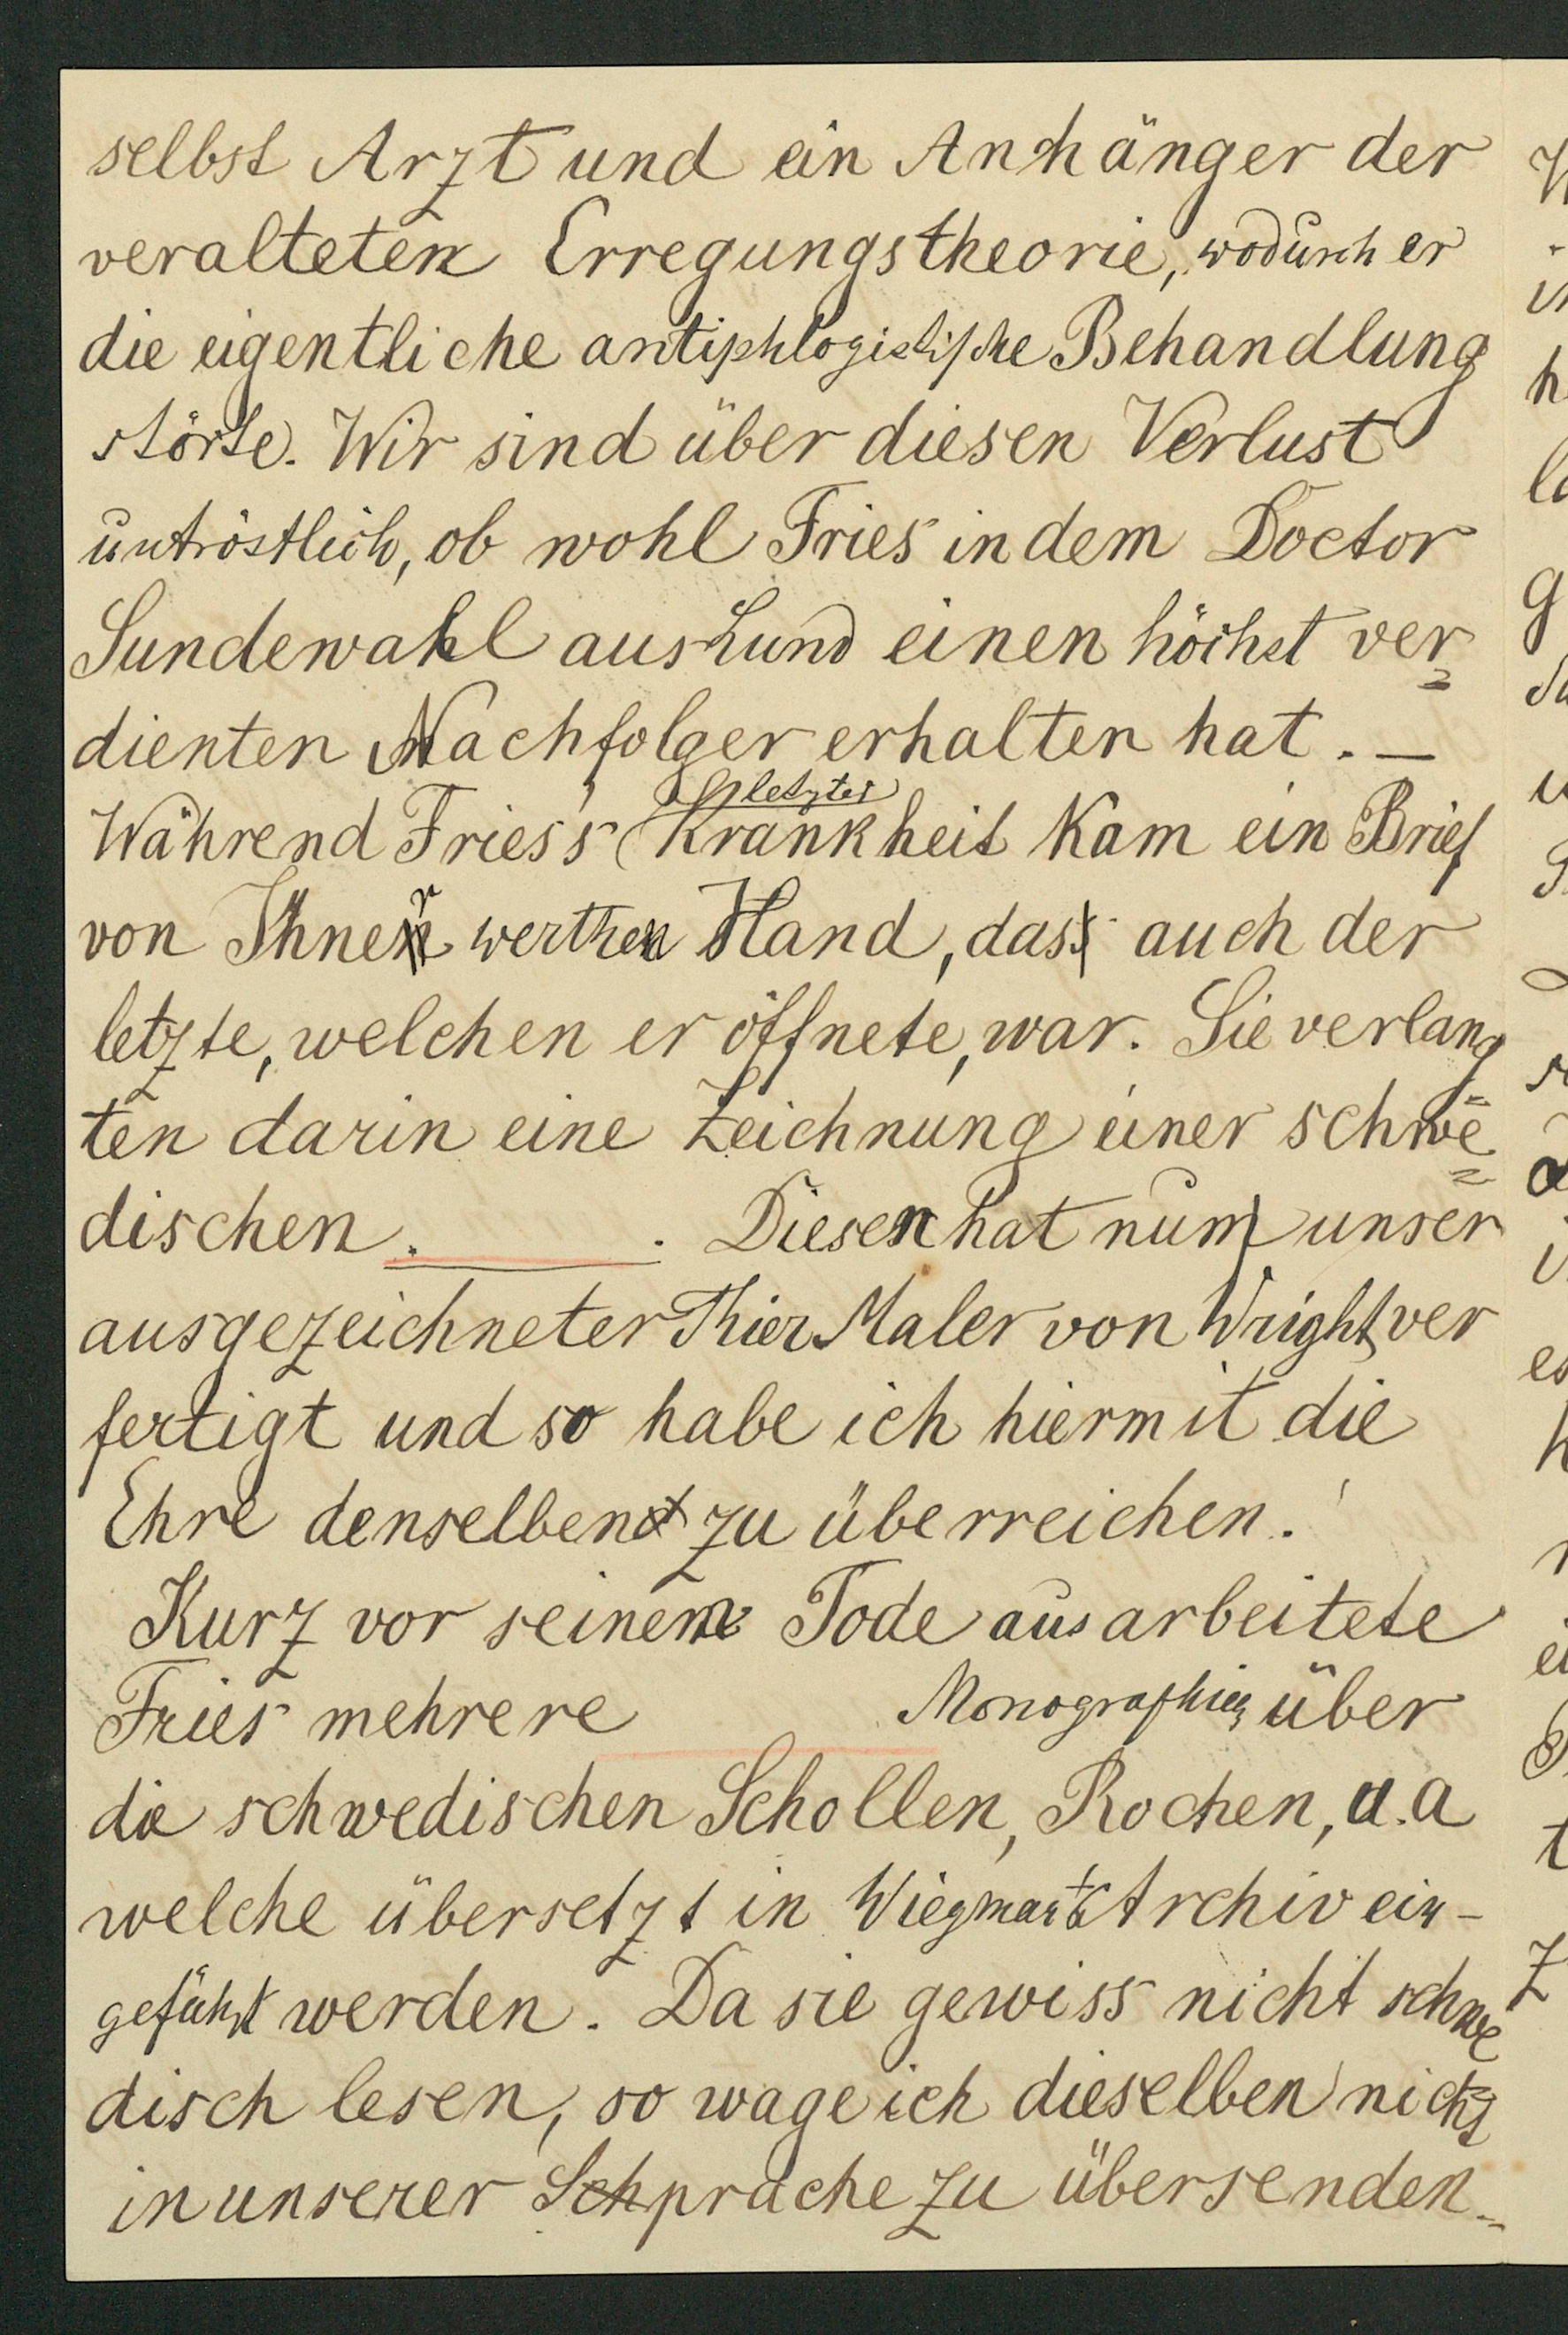 selbst Arzt und ein Anhänger der
veralteten Erregungstheorie, wodurch er
die eigentliche antiphlogistische Behandlung
störte. Wir sind über diesen Verlust
untröstlich, ob wohl Fries in dem Doctor
Sundewahl aus Lund einen höchst ver=
dienten Nachfolger erhalten hat. —
Während Fries's letzter Krankheit kam ein Brief
von Ihrer werthen Hand, das auch der
letzte, welchen er öffnete, war. Sie verlang=
ten darin eine Zeichnung einer schwe=
dischen . . Diesen hat nun unser
ausgezeichneter Thier Maler von Wright ver
fertigt und so habe ich hiermit die
Ehre denselben zu überreichen.
Kurz vor seinem Tode ausarbeitete
Fries mehrere Monographien über
die schwedischen Schollen, Rochen, u.a
welche übersetzt in Wiegmans Archiv ein-
geführt werden. Da sie gewiss nicht schwe
disch lesen, so wage ich dieselben nicht
in unserer Sprache zu übersenden.